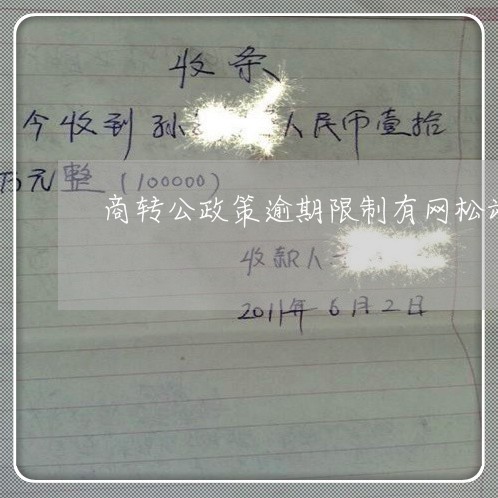 收条
今收到孙 人民币壹拾
万元整（100000）
商转公政策逾期限制有网松
收款人
2011年6月2日